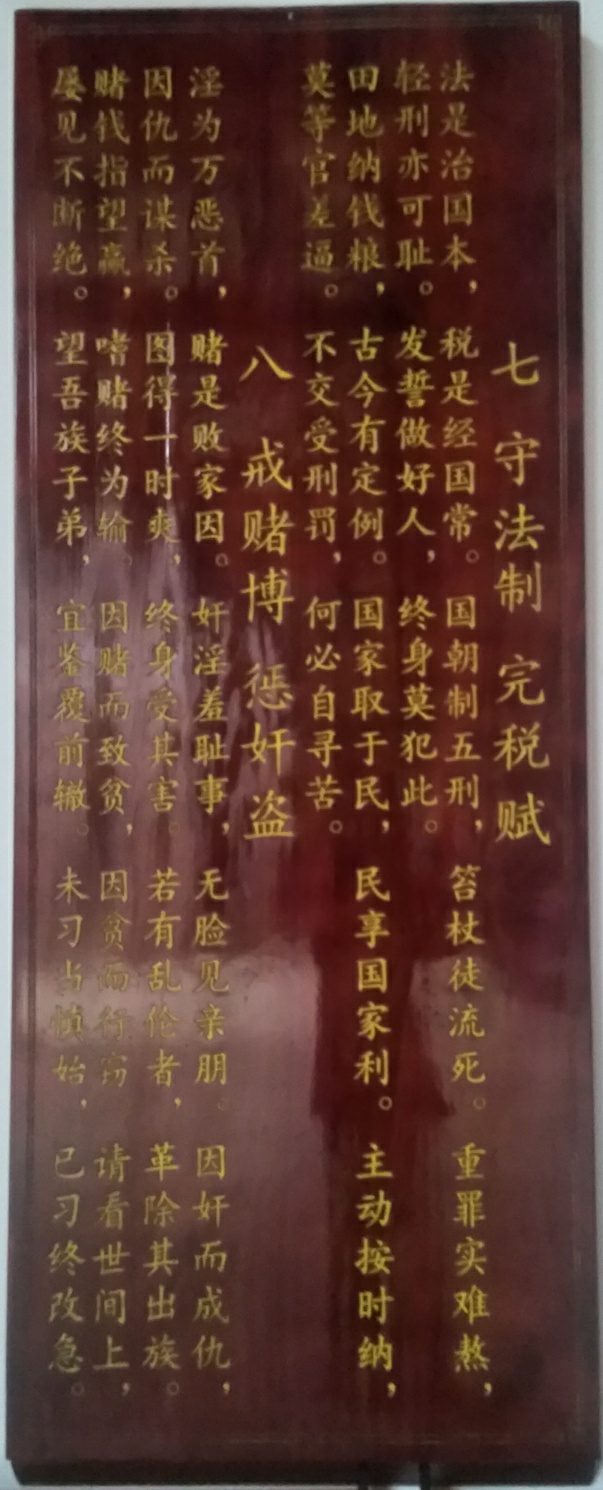 七 守法制 完税赋
法是治国本，税是经国常。国朝制五刑，笞杖徒流死。重罪实难熬，
轻刑亦可耻。发誓做好人，终身莫犯此。
田地纳钱粮，古今有定例。国家取于民，民享国家利。主动按时纳，
莫等官差逼。不交受刑罚，何必自寻苦。
八 戒赌博 惩奸盗
淫为万恶首，赌是败家因。奸淫羞耻事，无脸见亲朋。因奸而成仇，
因仇而谋杀。图得一时爽，终身受其害。若有乱伦者，革除其出族。
赌钱指望赢，嗜赌终为输。因赌而致贫，因贫而行窃。请看世间上，
屡见不断绝。望吾族子弟，宜鉴覆前辙。未习当慎始，已习终改急。